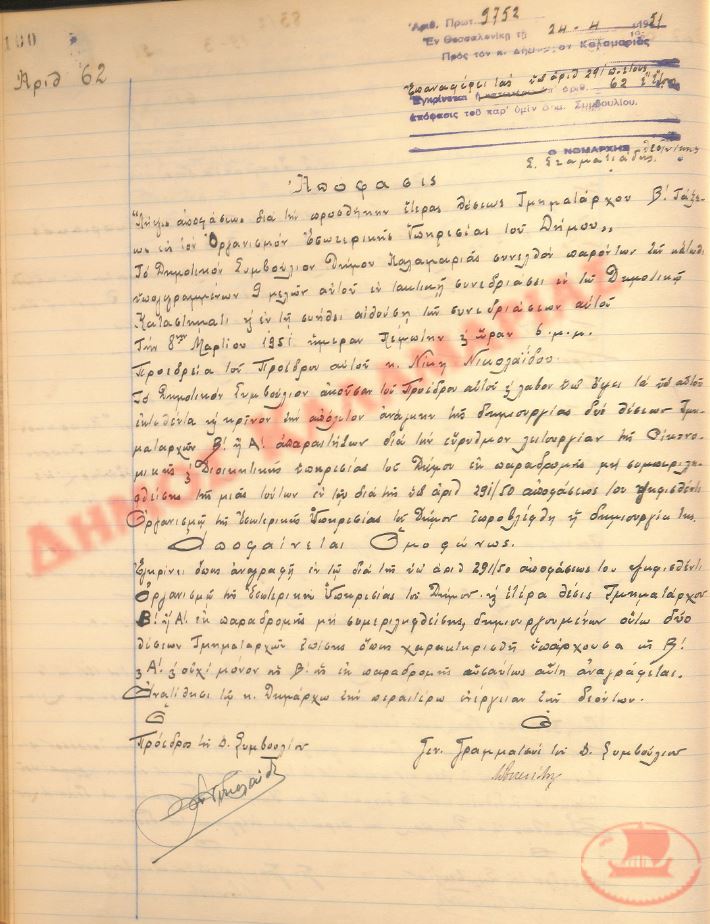 100
Ἀριθ 62
Ἀριθ. Πρωτ. 9752
Ἐν Θεσσαλονίκῃ τῇ 24-4-1951
Πρὸς τὸν κ. Δήμαρχον Καλαμαριᾶς
Ἐπαναφέρεται ὑπ ἀριθ 291
Ἐγκρίνεται ἡ ὑπ' ἀριθ. 62
ἀπόφασις τοῦ παρ' ὑμῖν Δημ. Συμβουλίου.
Ὁ ΝΟΜΑΡΧΗΣ
Σ. Σταματιάδης
Ἀπόφασις
"Λῆψις ἀποφάσεως διὰ τὴν προσθήκην ἑτέρας θέσεως Τμηματάρχου Β! Τάξε-
ως εἰς τὸν Ὀργανισμὸν Ἐσωτερικῆς Ὑπηρεσίας τοῦ Δήμου„
Τὸ Δημοτικὸν Συμβούλιον Δήμου Καλαμαριᾶς συνελθὸν παρόντων τῶν κάτωθι
ὑπογεγραμμένων 9 μελῶν αὐτοῦ ἐν τακτικῇ συνεδριάσει ἐν τῷ Δημοτικῷ
Καταστήματι κ ἐν τῇ συνήθει αἰθούσῃ τῶν συνεδριάσεων αὐτοῦ
Τὴν 8ην Μαρτίου 1951 ἡμέραν Πέμπτην κ ὥραν 6 μ.μ.
Προεδρείᾳ τοῦ Προέδρου αὐτοῦ κ. Νίκη Νικολαΐδου.
Τὸ Δημοτικὸν Συμβούλιον ἀκοῦσαν τοῦ Προέδρου αὐτοῦ κ λαβὸν ὑπ' ὄψει τὰ ὑπ' αὐτοῦ
ἐκτεθέντα κ κρῖνον τὴν ἀπόλυτον ἀνάγκην τῆς δημιουργίας δύο θέσεων Τμη-
ματαρχῶν Β! ἢ Α! ἀπαραιτήτων διὰ τὴν εὔρυθμον λειτουργίαν τῆς Οἰκονο-
μικῆς κ Διοικητικῆς ὑπηρεσίας τοῦ Δήμου ἐκ παραδρομῆς μὴ συμπεριλη-
φθείσης τῆς μιᾶς τούτων ἐν τῷ διὰ τῆς ὑπ ἀριθ 291/50 ἀποφάσεώς του ψηφισθέντι
Ὀργανισμῷ τῆς Ἐσωτερικῆς Ὑπηρεσίας τοῦ Δήμου προβλέφθη ἡ δημιουργία της.
Ἀποφαίνεται Ὁμοφώνως.
Ἐγκρίνει ὅπως ἀναγραφῇ ἐν τῷ διὰ τῆς ὑπ ἀριθ 291/50 ἀποφάσεώς του ψηφισθέντι
Ὀργανισμῷ τῆς Ἐσωτερικῆς Ὑπηρεσίας τοῦ Δήμου κ ἑτέρα θέσις Τμηματάρχου
Β! ἢ Α! ἐκ παραδρομῆς μὴ συμπεριληφθείσης, δημιουργουμένων οὕτω δύο
θέσεων Τμηματαρχῶν ἐπίσης ὅπως χαρακτηρισθῇ ὑπάρχουσα ὡς Β!
κ Α! κ οὐχὶ μόνον ὡς Β! ὡς ἐκ παραδρομῆς ὡσαύτως αὕτη ἀναγράφεται.
Ἀνατίθησι τῷ κ. Δημάρχῳ τὴν περαιτέρω ἐνέργειαν τῶν δεόντων.
Ὁ
Πρόεδρος τοῦ Δ. Συμβουλίου
Ὁ
Γεν. Γραμματεὺς τοῦ Δ. Συμβουλίου